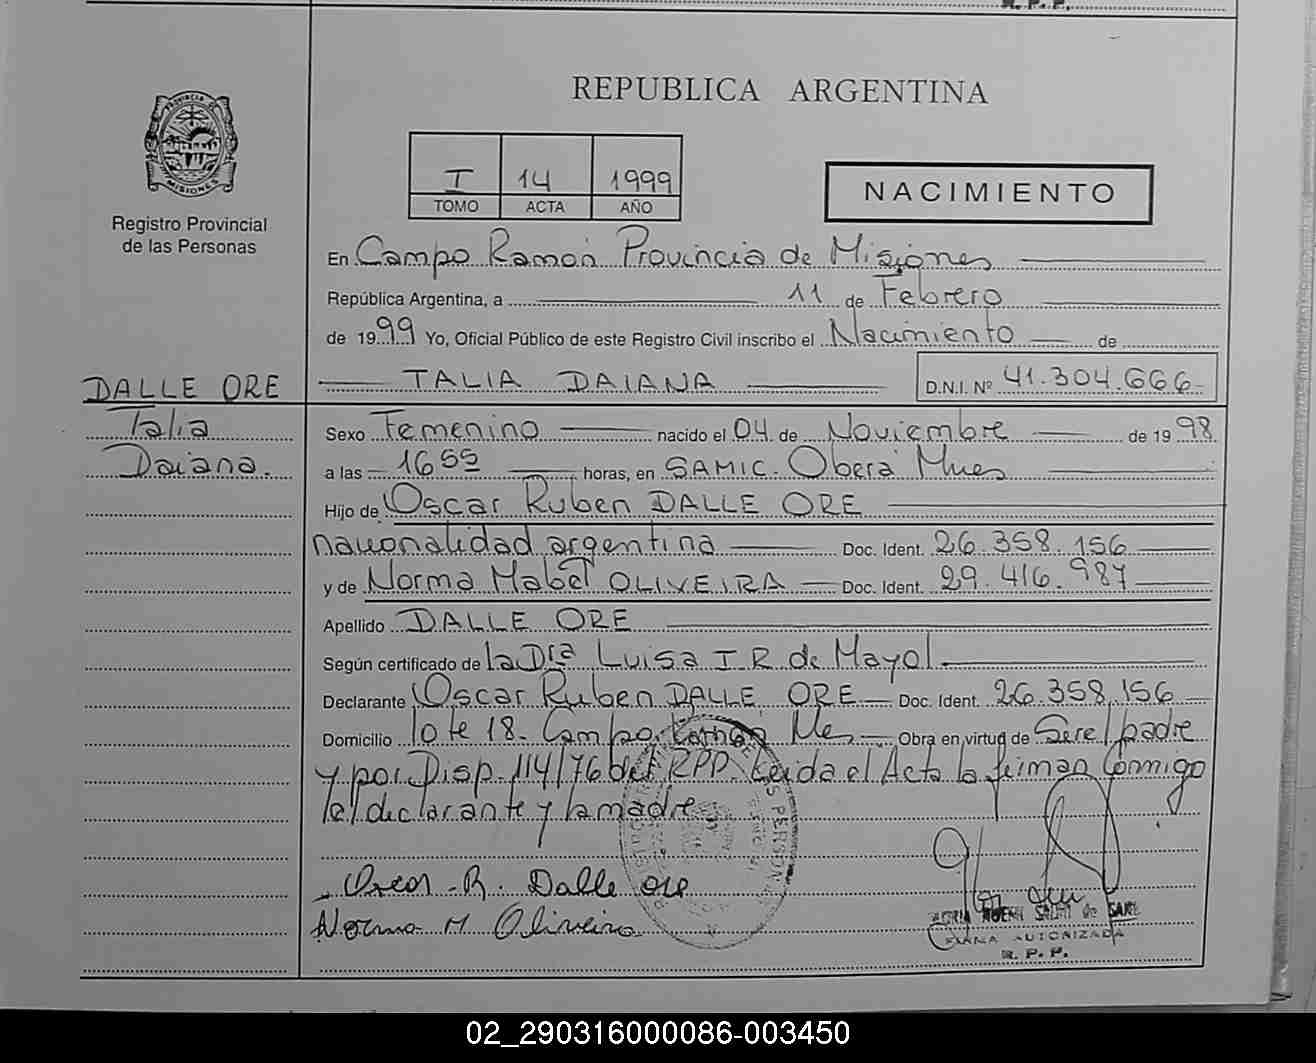 R. P. P.
REPUBLICA ARGENTINA
PROVINCIA DE
MISIONES
Registro Provincial
de las Personas
I 14 1999
TOMO ACTA AÑO
NACIMIENTO
En Campo Ramón Provincia de Misiones
República Argentina, a 11 de Febrero
de 1999 Yo, Oficial Público de este Registro Civil inscribo el Nacimiento de
TALIA DAIANA D.N.I. Nº 41.304.666
DALLE ORE
Talia
Daiana.
Sexo Femenino nacido el 04 de Noviembre de 1998
a las 16 55 horas, en SAMIC. Oberá Mnes
Hijo de Oscar Ruben DALLE ORE
nacionalidad argentina Doc. Ident. 26.358.156
y de Norma Mabel OLIVEIRA Doc. Ident. 29.416.987
Apellido DALLE ORE
Según certificado de la Dra Luisa I R de Mayol
Declarante Oscar Ruben DALLE ORE Doc. Ident. 26.358.156
Domicilio lote 18. Campo Ramón Mes Obra en virtud de Ser el padre
y por Disp. 114/76 del RPP. Leida el Acta la firman conmigo
el declarante y la madre
Oscar R. Dalle ore
Norma M Oliveira
FIRMA AUTORIZADA
R. P. P.
02_290316000086-003450